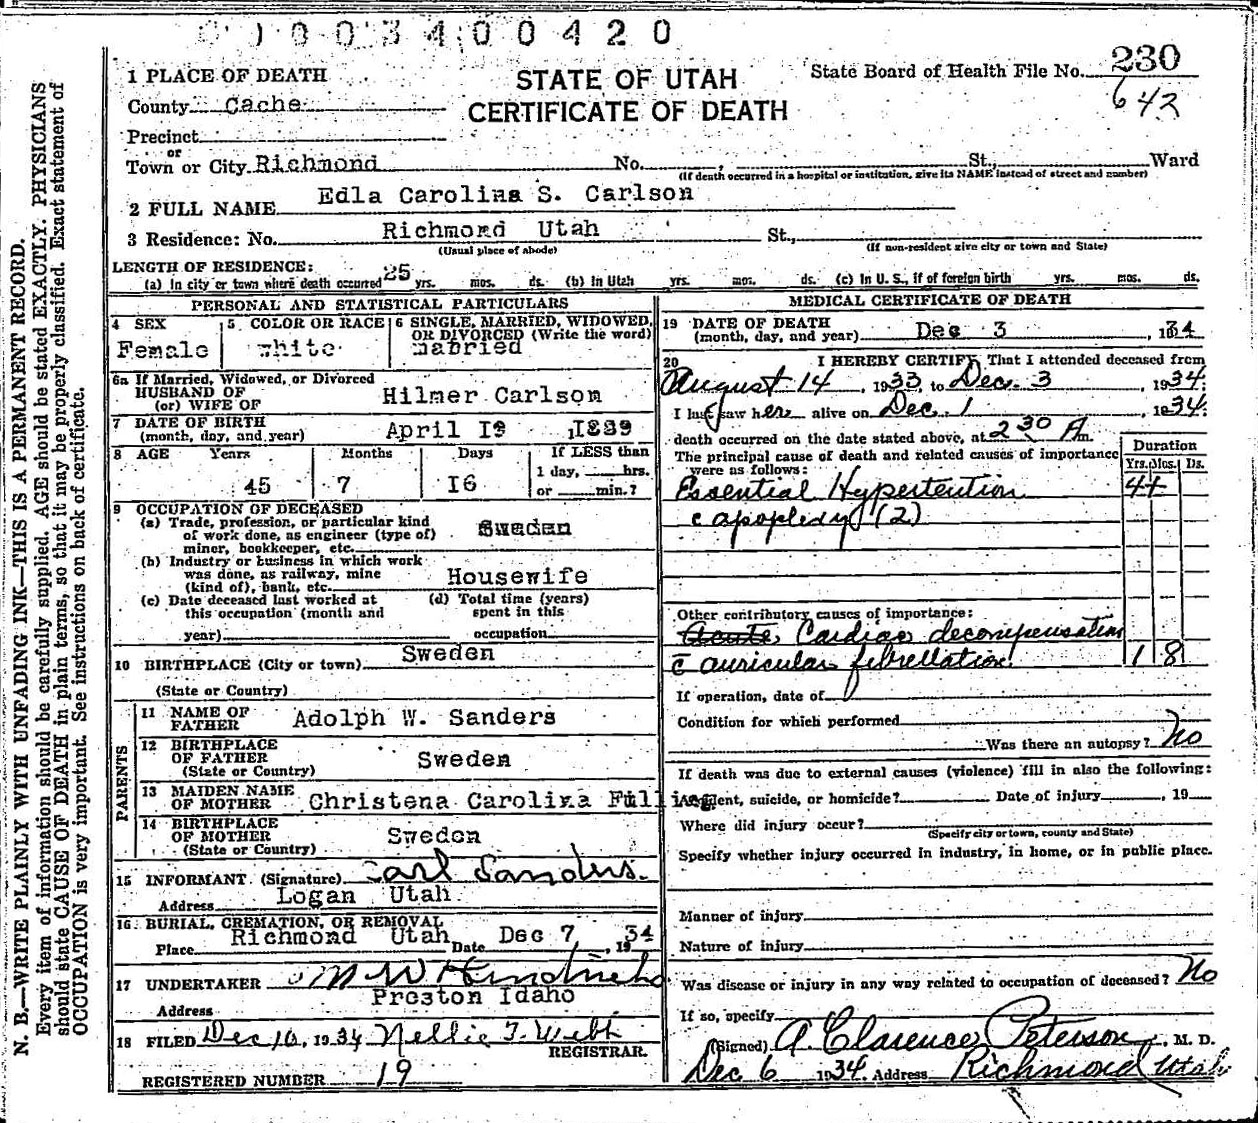 0003400420
1 PLACE OF DEATH
STATE OF UTAH
State Board of Health File No. 230
County Cache
CERTIFICATE OF DEATH
642
Precinct
or
Town or City Richmond No. , St., Ward
(If death occurred in a hospital or institution, give its NAME instead of street and number)
2 FULL NAME Edla Carolina S. Carlson
3 Residence: No. Richmond Utah St.,
(Usual place of abode) (If non-resident give city or town and State)
LENGTH OF RESIDENCE:
(a) In city or town where death occurred 25 yrs. mos. ds. (b) In Utah yrs. mos. ds. (c) In U. S., if of foreign birth yrs. mos. ds.
PERSONAL AND STATISTICAL PARTICULARS
4 SEX
Female
5 COLOR OR RACE
white
6 SINGLE, MARRIED, WIDOWED,
OR DIVORCED (Write the word)
6a If Married, Widowed, or Divorced
HUSBAND OF
(or) WIFE OF Hilmer Carlson
7 DATE OF BIRTH
(month, day, and year) April 19 ,1889
8 AGE Years Months Days If LESS than
1 day, hrs.
45 7 16 or min.?
9 OCCUPATION OF DECEASED
(a) Trade, profession, or particular kind
of work done, as engineer (type of)
miner, bookkeeper, etc. Sweden
(b) Industry or business in which work
was done, as railway, mine
(kind of), bank, etc. Housewife
(c) Date deceased last worked at
this occupation (month and
year)
(d) Total time (years)
spent in this
occupation
10 BIRTHPLACE (City or town) Sweden
(State or Country)
PARENTS
11 NAME OF
FATHER Adolph W. Sanders
12 BIRTHPLACE
OF FATHER Sweden
(State or Country)
13 MAIDEN NAME
OF MOTHER Christena Carolina
14 BIRTHPLACE
OF MOTHER Sweden
(State or Country)
15 INFORMANT (Signature) Carl Sanders.
Address Logan Utah
16 BURIAL, CREMATION, OR REMOVAL
Place Richmond Utah Date Dec 7, 1934
17 UNDERTAKER M W Hendricks
Address Preston Idaho
18 FILED Dec 10, 1934 Nellie T. Webb
REGISTRAR.
REGISTERED NUMBER 19
MEDICAL CERTIFICATE OF DEATH
19 DATE OF DEATH
(month, day, and year) Dec 3 , 34
20 I HEREBY CERTIFY, That I attended deceased from
August 14 , 1933, to Dec. 3 , 1934.
I last saw her alive on Dec. 1 , 1934.
death occurred on the date stated above, at 2 30 A m.
The principal cause of death and related causes of importance
were as follows:
Duration
Yrs. Mos. Ds.
Essential Hypertention
c apoplexy (2)
Other contributory causes of importance:
Acute Cardiac decompensation
c̄ auricular fibrellation. 1 8
If operation, date of
Condition for which performed
Was there an autopsy? No
If death was due to external causes (violence) fill in also the following:
Accident, suicide, or homicide? Date of injury , 19
Where did injury occur?
(Specify city or town, county and State)
Specify whether injury occurred in industry, in home, or in public place.
Manner of injury
Nature of injury
Was disease or injury in any way related to occupation of deceased? No
If so, specify
(Signed) A. Clarence Peterson , M. D.
Dec 6 1934 Address Richmond Utah
N. B.—WRITE PLAINLY WITH UNFADING INK—THIS IS A PERMANENT RECORD.
Every item of information should be carefully supplied. AGE should be stated EXACTLY. PHYSICIANS
should state CAUSE OF DEATH in plain terms, so that it may be properly classified. Exact statement of
OCCUPATION is very important. See instructions on back of certificate.